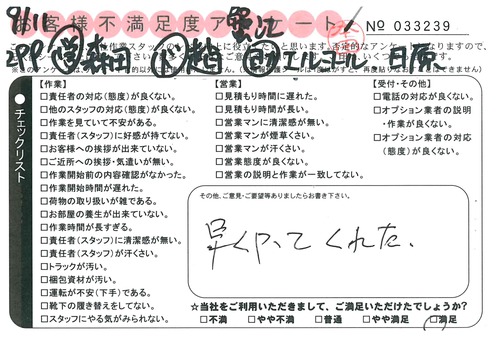 9/11
お客様不満足度アンケート
蟹江
No 033239
299
森田
エル・コール
日原
●チェックリスト
【作業】
□責任者の対応(態度)が良くない。
□他のスタッフの対応(態度)が良くない。
□作業を見ていて不安がある。
□責任者(スタッフ)に好感が持てない。
□お客様への挨拶が出来ていない。
□ご近所への挨拶・気遣いが無い。
□作業開始前の内容確認がなかった。
□作業開始時間が遅れた。
□荷物の取り扱いが雑である。
□お部屋の養生が出来ていない。
□作業時間が長すぎる。
□責任者(スタッフ)に清潔感が無い。
□責任者(スタッフ)が汗くさい。
□トラックが汚い。
□梱包資材が汚い。
□運転が不安(下手)である。
□靴下の履き替えをしてない。
□スタッフにやる気がみられない。
【営業】
□見積もり時間に遅れた。
□見積もり時間が長い。
□営業マンに清潔感が無い。
□営業マンが煙草くさい。
□営業マンが汗くさい。
□営業態度が良くない。
□営業の説明と作業が一致してない。
【受付・その他】
□電話の対応が良くない。
□オプション業者の説明
・作業が良くない。
□オプション業者の対応
(態度)が良くない。
その他、ご意見・ご要望等ありましたらお書き下さい。
早くやってくれた。
☆当社をご利用いただきまして、ご満足いただけたでしょうか?
□不満 □やや不満 □普通 □やや満足 □満足